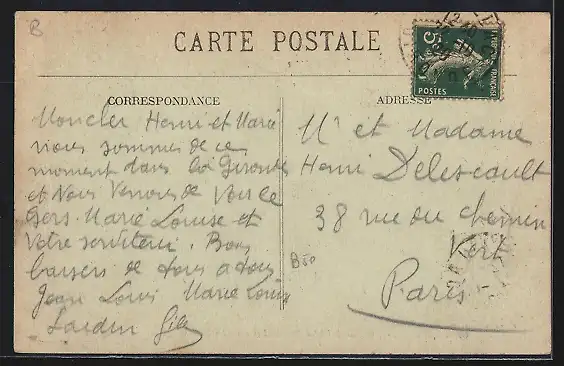 B
CARTE POSTALE
5
POSTES
CORRESPONDANCE
ADRESSE
Moncher Henri et Marie
nous sommes de ce
moment dans la Gironde
et Nous Venons de Voir le
Gers. Marie Louise et
Votre serviteur. Bons
baisers de tous a tous
Jean Louis Marie Louise
Mr et Madame
Henri Delescault
38 rue du chemin
Vert
Paris